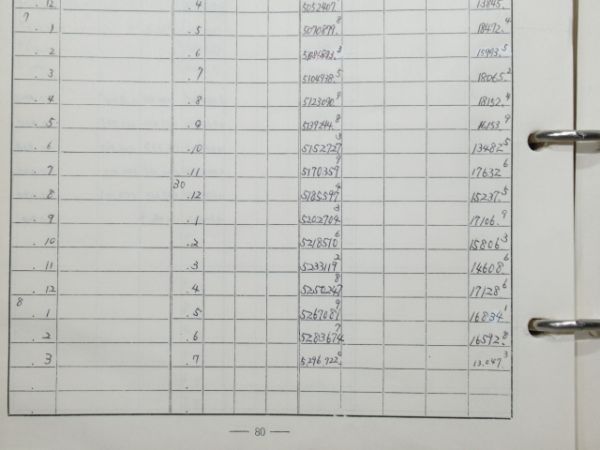 . 12 .4 5052407. 13845.
7 . 1 .5 5070879.8 18472.4
. 2 .6 5086873.3 15993.5
. 3 .7 5104938.5 18065.2
. 4 .8 5123090.9 18152.4
. 5 .9 5139244.8 16153.9
. 6 .10 5152727.3 13482.5
. 7 .11 5170359.9 17632.6
. 8 30 .12 5185597.4 15237.5
. 9 .1 5202704.3 17106.9
. 10 .2 5218510.6 15806.3
. 11 .3 5233119.2 14608.6
. 12 .4 5250247.8 17128.6
8 . 1 .5 5267081.9 16834.1
. 2 .6 5283674.7 16592.8
. 3 .7 5296722.0 13.047.3
— 80 —